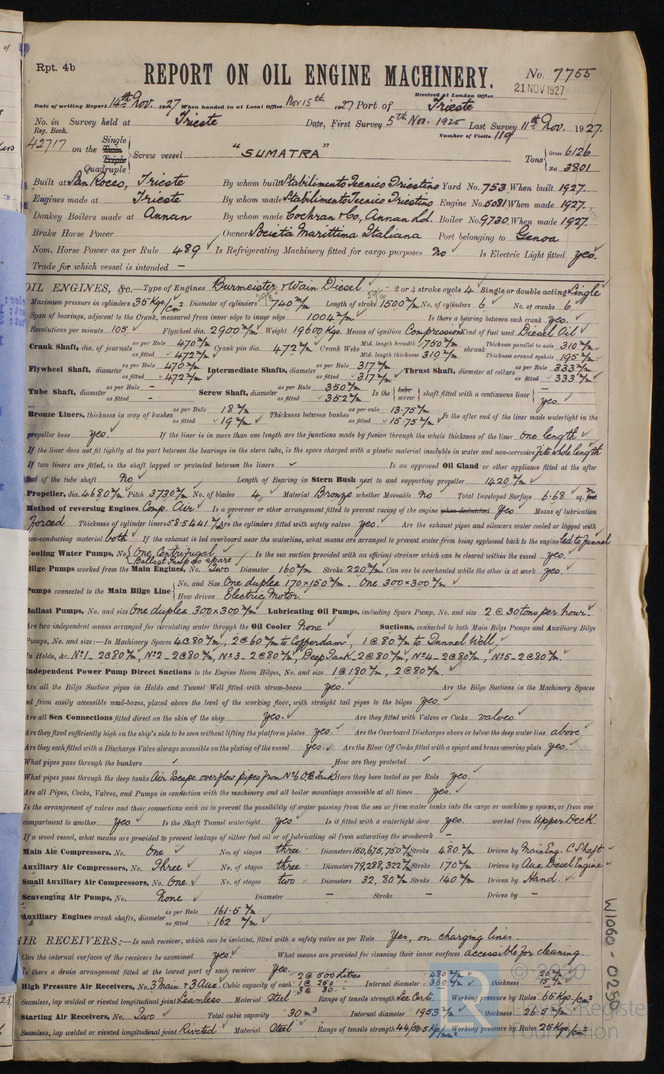 Rpt. 4b
REPORT ON OIL ENGINE MACHINERY.
No. 7755
21 NOV 1927
Received at London Office
Date of writing Report 14th Nov. 1927 When handed in at Local Office Nov 15th 1927 Port of Trieste
No. in Survey held at Trieste Date, First Survey 5th Nov. 1925 Last Survey 11th Nov. 1927.
Reg. Book. Number of Visits 119
42717 on the Single Twin Triple Quadruple Screw vessel "SUMATRA" Tons Gross 6126 Net 3801
Built at San Rocco, Trieste By whom built Stabilimento Tecnico Triestino Yard No. 753 When built 1927.
Engines made at Trieste By whom made Stabilimento Tecnico Triestino Engine No. 5081 When made 1927.
Donkey Boilers made at Annan By whom made Cochran & Co, Annan Ld. Boiler No. 9730 When made 1927.
Brake Horse Power Owners Società Marittima Italiana Port belonging to Genoa
Nom. Horse Power as per Rule 489 Is Refrigerating Machinery fitted for cargo purposes No Is Electric Light fitted yes.
Trade for which vessel is intended —
OIL ENGINES, &c.—Type of Engines Burmeister & Wain Diesel 2 or 4 stroke cycle 4 Single or double acting Single
Maximum pressure in cylinders 35 Kgs/cm² Diameter of cylinders 740 m/m Length of stroke 1500 m/m No. of cylinders 6 No. of cranks 6
Span of bearings, adjacent to the Crank, measured from inner edge to inner edge 1004 m/m Is there a bearing between each crank yes.
Revolutions per minute 105. Flywheel dia. 2900 m/m Weight 19600 Kgs. Means of ignition Compression Kind of fuel used Diesel Oil
Crank Shaft, dia. of journals as per Rule 470 m/m as fitted 472 m/m Crank pin dia. 472 m/m Crank Webs Mid. length breadth 750 m/m Mid. length thickness 310 m/m shrunk Thickness parallel to axis 310 m/m Thickness around eyehole 195 m/m
Flywheel Shaft, diameter as per Rule 470 m/m as fitted 472 m/m Intermediate Shafts, diameter as per Rule 317 m/m as fitted 317 m/m Thrust Shaft, diameter at collars as per Rule 333 m/m as fitted 333 m/m
Tube Shaft, diameter as per Rule — as fitted — Screw Shaft, diameter as per Rule 350 m/m as fitted 352 m/m Is the tube screw shaft fitted with a continuous liner yes.
Bronze Liners, thickness in way of bushes as per Rule 18 m/m as fitted 19 m/m Thickness between bushes as per rule 13.75 m/m as fitted 15.75 m/m Is the after end of the liner made watertight in the
propeller boss yes. If the liner is in more than one length are the junctions made by fusion through the whole thickness of the liner one length
If the liner does not fit tightly at the part between the bearings in the stern tube, is the space charged with a plastic material insoluble in water and non-corrosive fits whole length
If two liners are fitted, is the shaft lapped or protected between the liners Is an approved Oil Gland or other appliance fitted at the after
end of the tube shaft No Length of Bearing in Stern Bush next to and supporting propeller 1420 m/m
Propeller, dia. 4680 m/m Pitch 3730 m/m No. of blades 4 Material Bronze whether Moveable No Total Developed Surface 6.68 sq.
Method of reversing Engines Comp. Air Is a governor or other arrangement fitted to prevent racing of the engine when declutched Yes Means of lubrication
Forced Thickness of cylinder liners 58.5 & 41 m/m Are the cylinders fitted with safety valves yes Are the exhaust pipes and silencers water cooled or lagged with
non-conducting material both If the exhaust is led overboard near the waterline, what means are arranged to prevent water from being syphoned back to the engine led to funnel
Cooling Water Pumps, No. One Centrifugal Ballast Pump as spare Is the sea suction provided with an efficient strainer which can be cleared within the vessel yes
Bilge Pumps worked from the Main Engines, No. Two Diameter 160 m/m Stroke 220 m/m Can one be overhauled while the other is at work yes.
Pumps connected to the Main Bilge Line No. and Size One duplex 170 × 150 m/m. One 300 × 300 m/m How driven Electric Motor
Ballast Pumps, No. and size One duplex 300 × 300 m/m Lubricating Oil Pumps, including Spare Pump, No. and size 2 @ 30 tons per hour.
Are two independent means arranged for circulating water through the Oil Cooler None Suctions, connected to both Main Bilge Pumps and Auxiliary Bilge
Pumps, No. and size:—In Machinery Spaces 4 @ 80 m/m, 2 @ 60 m/m to Cofferdam, 1 @ 80 m/m to Tunnel Well
In Holds, &c. Nº1 - 2 @ 80 m/m, Nº2 - 2 @ 80 m/m, Nº3 - 2 @ 80 m/m, Deep Tank 2 @ 80 m/m, Nº4 - 2 @ 80 m/m, Nº5 - 2 @ 80 m/m.
Independent Power Pump Direct Suctions to the Engine Room Bilges, No. and size 1 @ 180 m/m, 2 @ 80 m/m.
Are all the Bilge Suction pipes in Holds and Tunnel Well fitted with strum-boxes yes. Are the Bilge Suctions in the Machinery Spaces
led from easily accessible mud-boxes, placed above the level of the working floor, with straight tail pipes to the bilges yes
Are all Sea Connections fitted direct on the skin of the ship yes. Are they fitted with Valves or Cocks valves.
Are they fixed sufficiently high on the ship's side to be seen without lifting the platform plates yes. Are the Overboard Discharges above or below the deep water line above
Are they each fitted with a Discharge Valve always accessible on the plating of the vessel yes. Are the Blow Off Cocks fitted with a spigot and brass covering plate yes.
What pipes pass through the bunkers How are they protected
What pipes pass through the deep tanks Air Escape overflow pipes from Nº6 D.B. Tank Have they been tested as per Rule yes.
Are all Pipes, Cocks, Valves, and Pumps in connection with the machinery and all boiler mountings accessible at all times yes.
Is the arrangement of valves and their connections such as to prevent the possibility of water passing from the sea or from water tanks into the cargo or machinery spaces, or from one
compartment to another yes Is the Shaft Tunnel watertight yes Is it fitted with a watertight door yes. worked from Upper Deck.
If a wood vessel, what means are provided to prevent leakage of either fuel oil or of lubricating oil from saturating the woodwork —
Main Air Compressors, No. One No. of stages three Diameters 150, 675, 750 m/m Stroke 480 m/m Driven by Main Eng. C. Shaft
Auxiliary Air Compressors, No. Three No. of stages three Diameters 79, 288, 322 m/m Stroke 170 m/m Driven by Aux Diesel Engine
Small Auxiliary Air Compressors, No. One No. of stages two Diameters 32, 80 m/m Stroke 140 m/m Driven by Hand.
Scavenging Air Pumps, No. None Diameter — Stroke — Driven by —
Auxiliary Engines crank shafts, diameter as per Rule 161.5 m/m as fitted 162 m/m
AIR RECEIVERS:—Is each receiver, which can be isolated, fitted with a safety valve as per Rule Yes, on charging lines
Can the internal surfaces of the receivers be examined yes What means are provided for cleaning their inner surfaces accessible for cleaning.
Is there a drain arrangement fitted at the lowest part of each receiver Yes.
High Pressure Air Receivers, No. 3 Main & 3 Aux. Cubic capacity of each 2 @ 500 Litres 1 @ 250 3 @ 30 Internal diameter 480 m/m 360 m/m thickness 20 m/m 15 m/m
Seamless, lap welded or riveted longitudinal joint Seamless Material Steel Range of tensile strength See Certs. Working pressure by Rules 65 Kgs/cm²
Starting Air Receivers, No. Two Total cubic capacity 30 m³ Internal diameter 1953 m/m thickness 26.5 m/m
Seamless, lap welded or riveted longitudinal joint Riveted Material Steel Range of tensile strength 44/50.5 Kg/mm² Working pressure by Rules 25 Kgs/cm²
W1060-0250